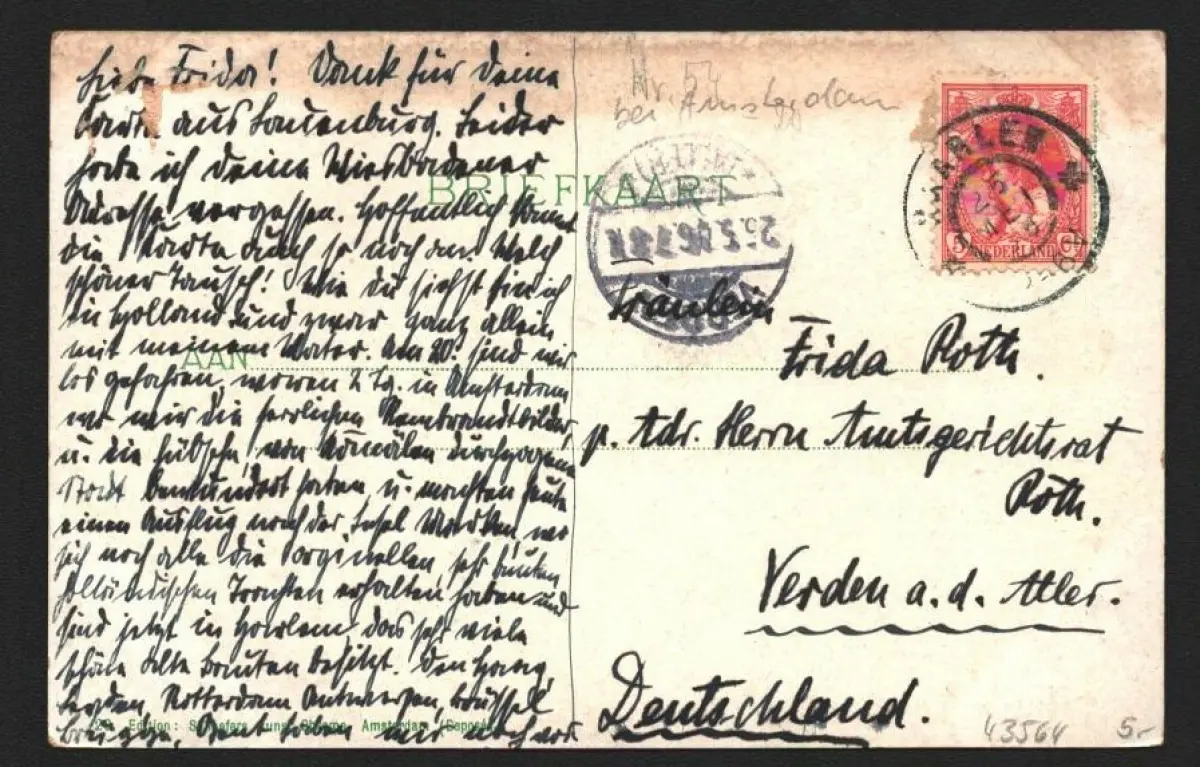 Liebe Frida! Dank für deine
Karte aus Lauenburg. Leider
habe ich deine Wiesbadener
Adresse vergessen. Hoffentlich kommt
die Karte auch so noch an. Welch
schöner Tausch! Wie du siehst bin ich
in Holland und zwar ganz allein
mit meinem Vater. Am 20. sind wir
los gefahren, waren 2 Tg. in Amsterdam
wo wir die herrlichen Rembrandtbilder
u. die hübsche, von Kanälen durchzogene
Stadt bewundert haben u. machten heute
einen Ausflug nach der Insel Marken, wo
sich noch alle die orginellen, sehr bunten
holländischen Trachten erhalten haben und
sind jetzt in Haarlem, das sehr viele
schöne alte Bauten besitzt. Den Haag,
Rotterdam, Antwerpen, Brüssel
Brügge, Gent haben wir noch vor
Edition: Amsterdam
Nr. 54
bei Amsterdam
BRIEFKAART
AAN
HAARLEM
NEDERLAND
Fräulein
Frida Roth.
p. Adr. Herrn Amtsgerichtsrat
Roth.
Verden a. d. Aller.
Deutschland.
43564 5.-